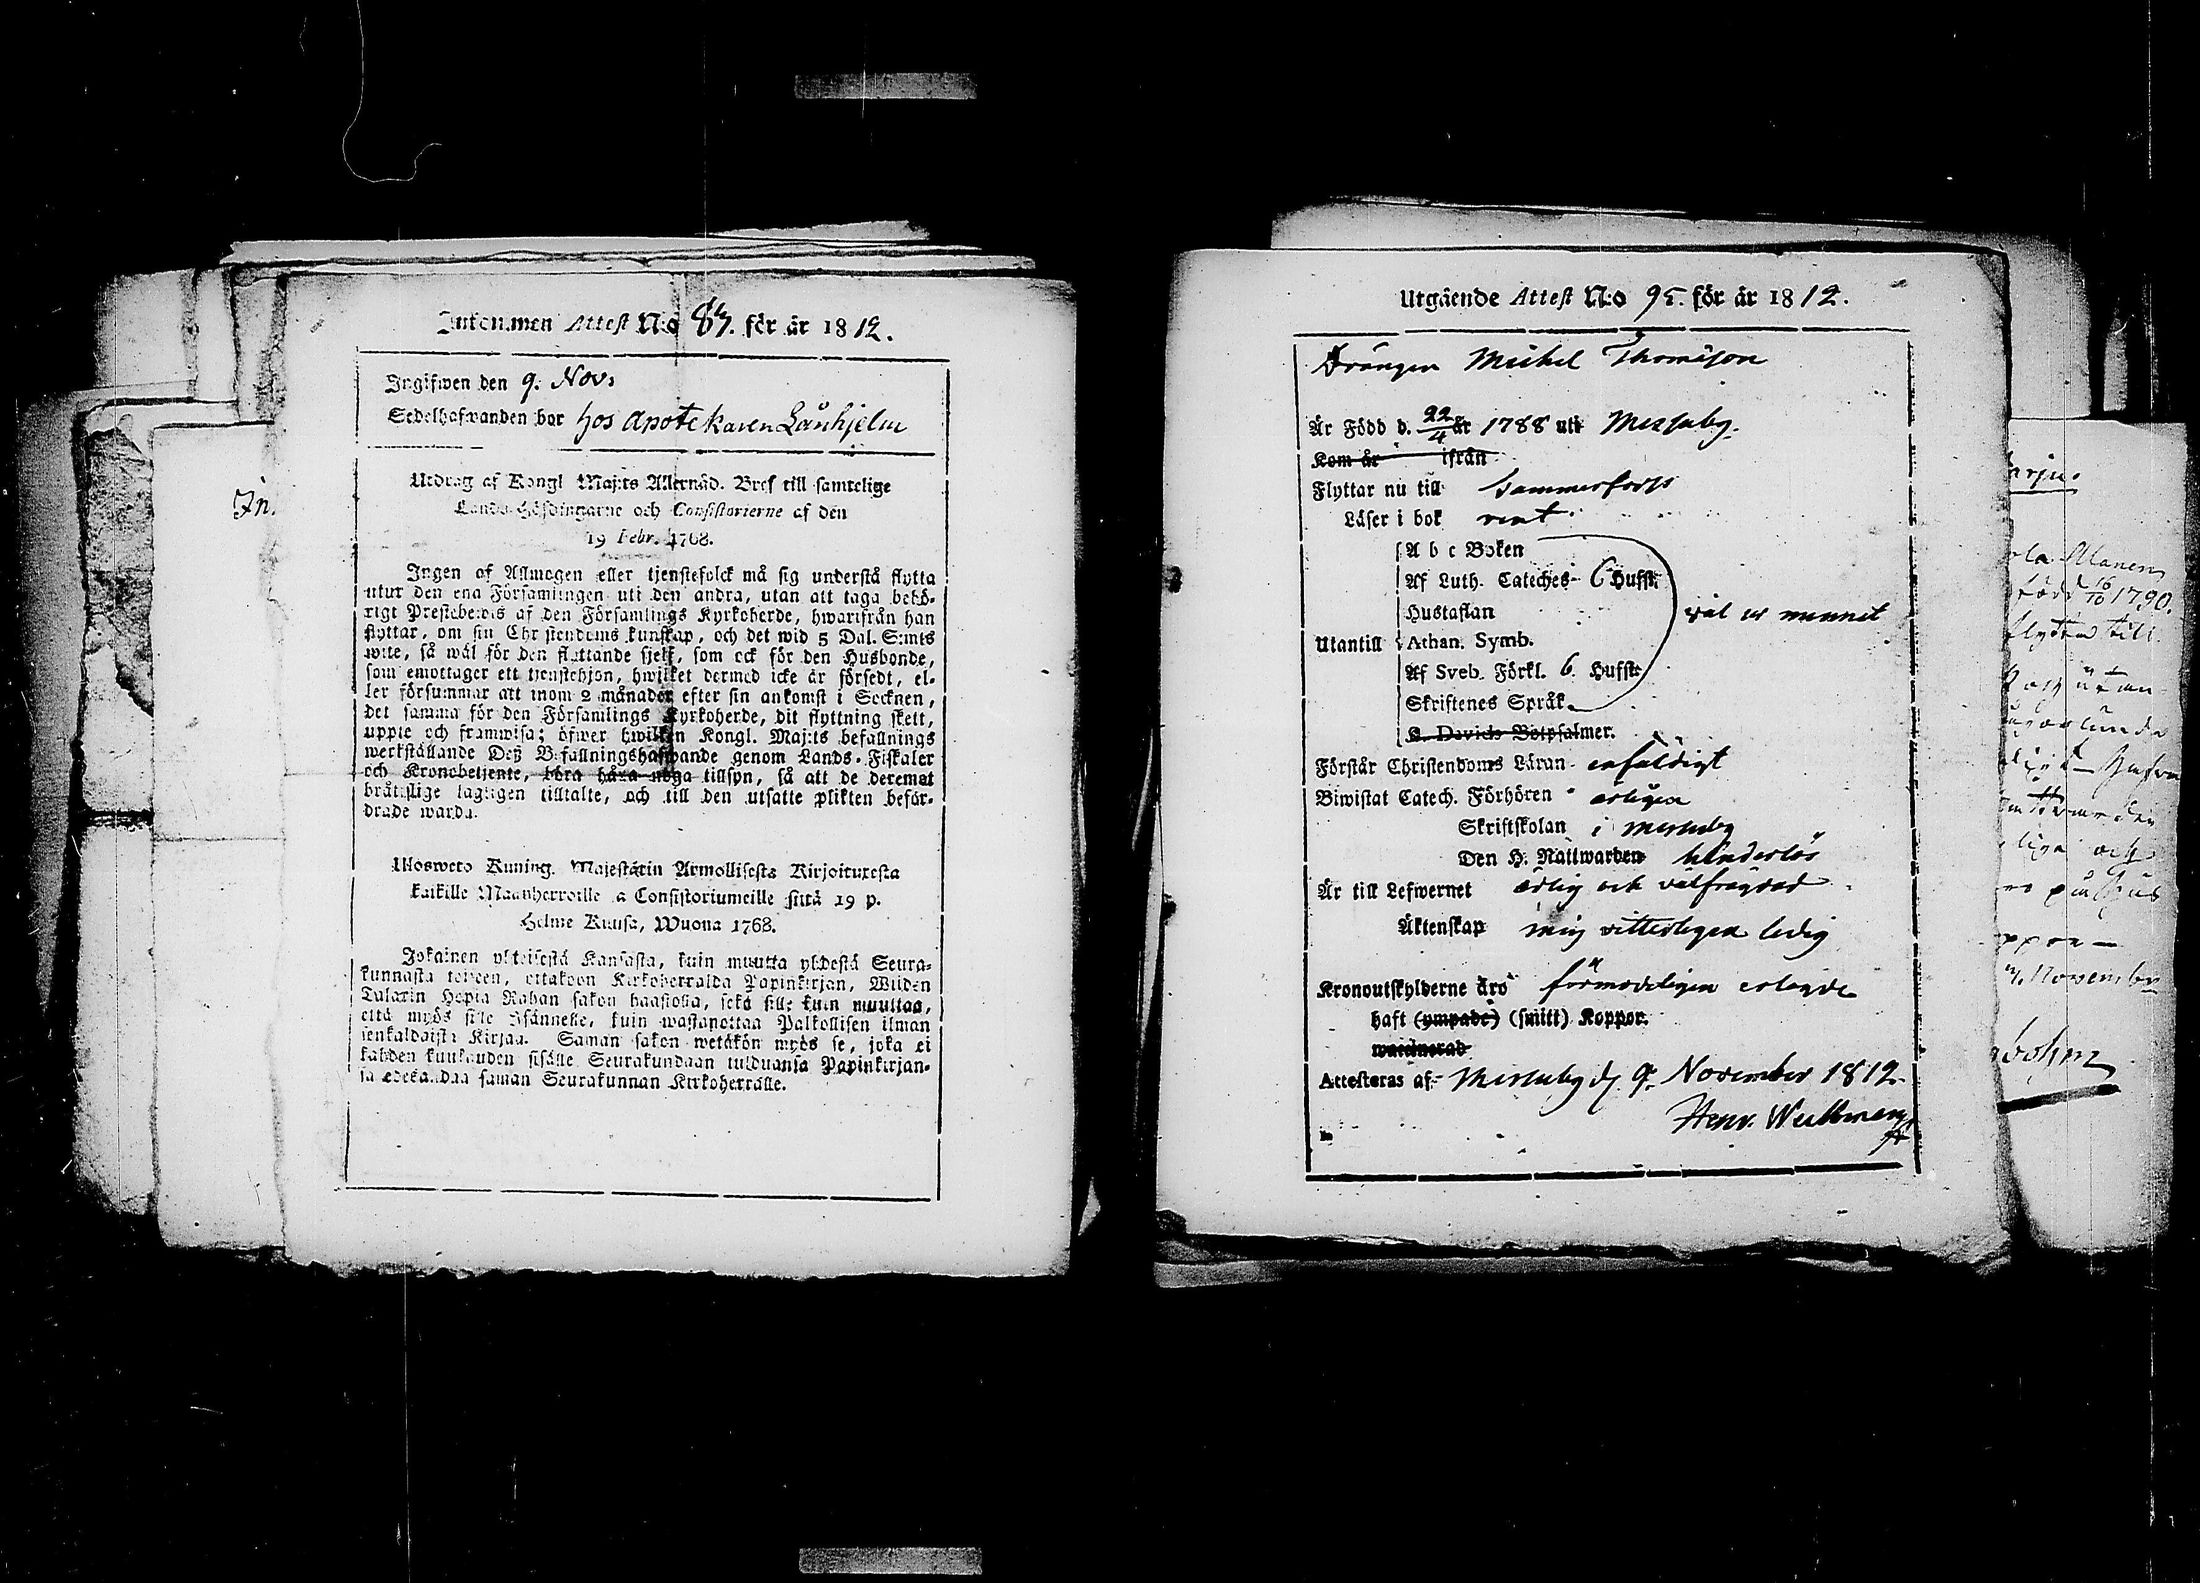 In.
Inkommen Attest N:o 87. för år 1812.
Ingifwen den 9. Nov:
Sedelhafwanden bor hos Apotekaren Låuhjelm
Utdrag af Kongl Maj:ts Allernåd. Bref till samtelige
Lands-Höfdingarne och Consistorierne af den
19 Febr. 1768.
Ingen af Allmogen eller tjenstefolck må sig understå flytta
utur den ena Församlingen uti den andra, utan att taga behö-
rigt Prestebewis af den Församlings Kyrkoherde, hwarifrån han
flyttar, om sin Christendoms kunskap, och det wid 5 Dal. S:mts
wite, så wäl för den flyttande sjelf, som ock för den Husbonde,
som emottager ett tjenstehjon, hwilket dermed icke är försedt, el-
ler försummar att inom 2 månader efter sin ankomst i Socknen,
det samma för den Församlings Kyrkoherde, dit flyttning skett,
uppte och framwisa; öfwer hwilken Kongl. Maj:ts befallnings
werkställande Deß Befallningshafwande genom Lands-Fiskaler
och Kronobetjente, böra håra noga tillsyn, så att de deremot
brätslige lagligen tilltalte, och till den utsatte plikten beför-
drade warda.
Ulosweto Kuning. Majestätin Armollisesta Kirjoituxesta
kaikille Maanherroille ja Consistoriumeille siitä 19 p.
Helme Kuusa, Wuona 1768.
Jokainen yhteisestä Kansasta, kuin muutta yhdestä Seura-
kunnasta toiseen, ottakoon Kirkoherralda Papinkirjan, Wiiden
Talarin Hopia Rahan sakon haastolla, sekä sille kuin muuttaa,
että myös sille Isännelle, kuin wastanottaa Palkollisen ilman
senkaldaista Kirjaa. Saman sakon wetäkön myös se, joka ei
kahden kuukauden sisälle Seurakundaan tulduansa Papinkirjan-
sa edeskandaa saman Seurakunnan Kirkoherralle.
Utgående Attest N:o 95. för år 1812.
Drängen Michel Thomasson
Är Född d. 22/4 år 1788 uti Messuby.
Kom år ifrån
Flyttar nu till Tammerfors
Läser i bok rent
A b c Boken
Af Luth. Cateches- 6 Hufst.
Hustaflan
Utantill Athan. Symb. wäl ur minnet
Af Sveb. Förkl. 6. Hufst.
Skriftenes Språk.
K. Davids Botpsalmer.
Förstår Christendoms Läran enfaldigt
Biwistat Catech. Förhören årligen
Skriftskolan i Messuby
Den H. Nattwarden hinderlös
Är till Lefwernet ärlig och välfrägdad
Äktenskap mig vitterligen ledig
Kronoutskylderne äro förmodeligen erlagde
haft (ympade) (smitt) Koppor.
waccinerad
Attesteras af Messuby d. 9. November 1812.
Henr. Wullmen
arju.
Alanen
född 16/10 1790.
flyttar till
November
bohm